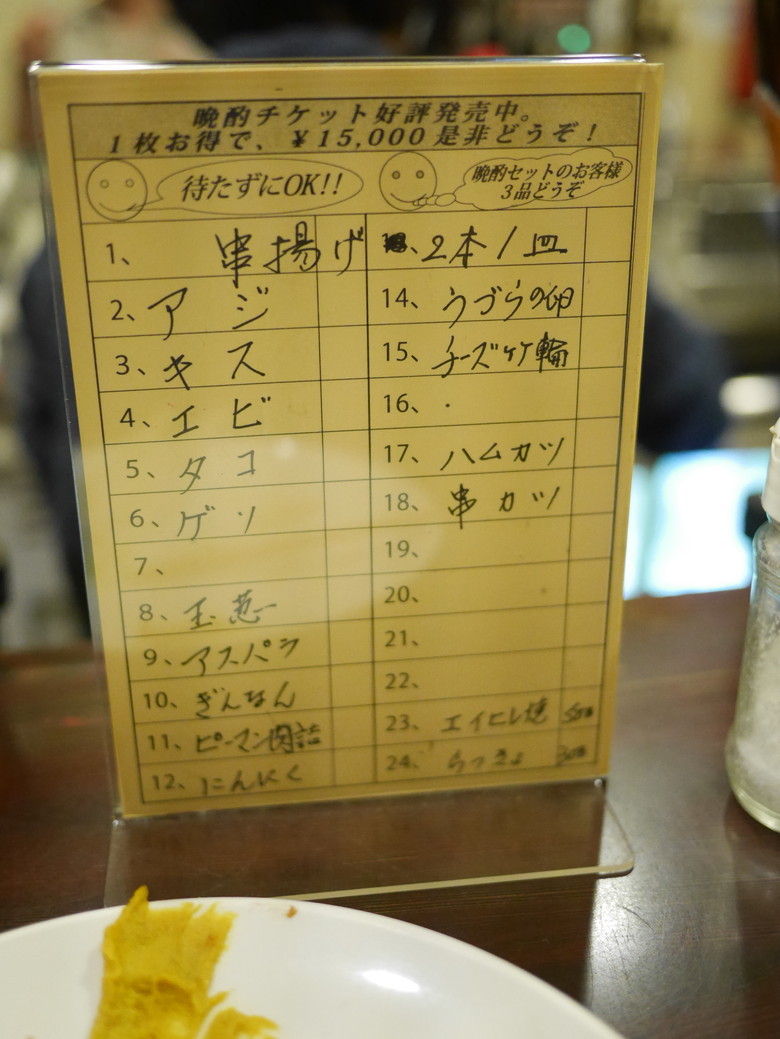 晩酌チケット好評発売中。
1枚お得で、￥15,000是非どうぞ！
待たずにOK!!
晩酌セットのお客様
3品どうぞ
1、 串揚げ
2、アジ
3、キス
4、エビ
5、タコ
6、ゲソ
7、
8、玉葱
9、アスパラ
10、ぎんなん
11、ピーマン肉詰
12、にんにく
2本/皿
14、うづらの卵
15、チーズ竹輪
16、
17、ハムカツ
18、串カツ
19、
20、
21、
22、
23、エイヒレ焼
24、らっきょ